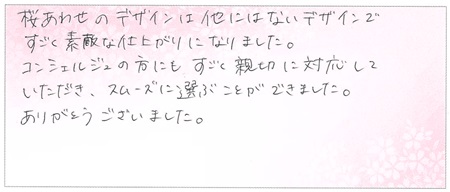 桜あわせのデザインは他にはないデザインで
すごく素敵な仕上がりになりました。
コンシェルジュの方にもすごく親切に対応して
いただき、スムーズに選ぶことができました。
ありがとうございました。